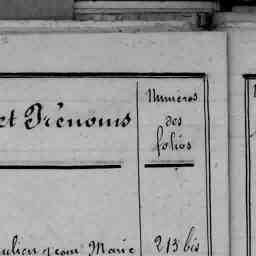 et Prénoms
Numéros
des
folios
Julien Jean Marie 213 bis